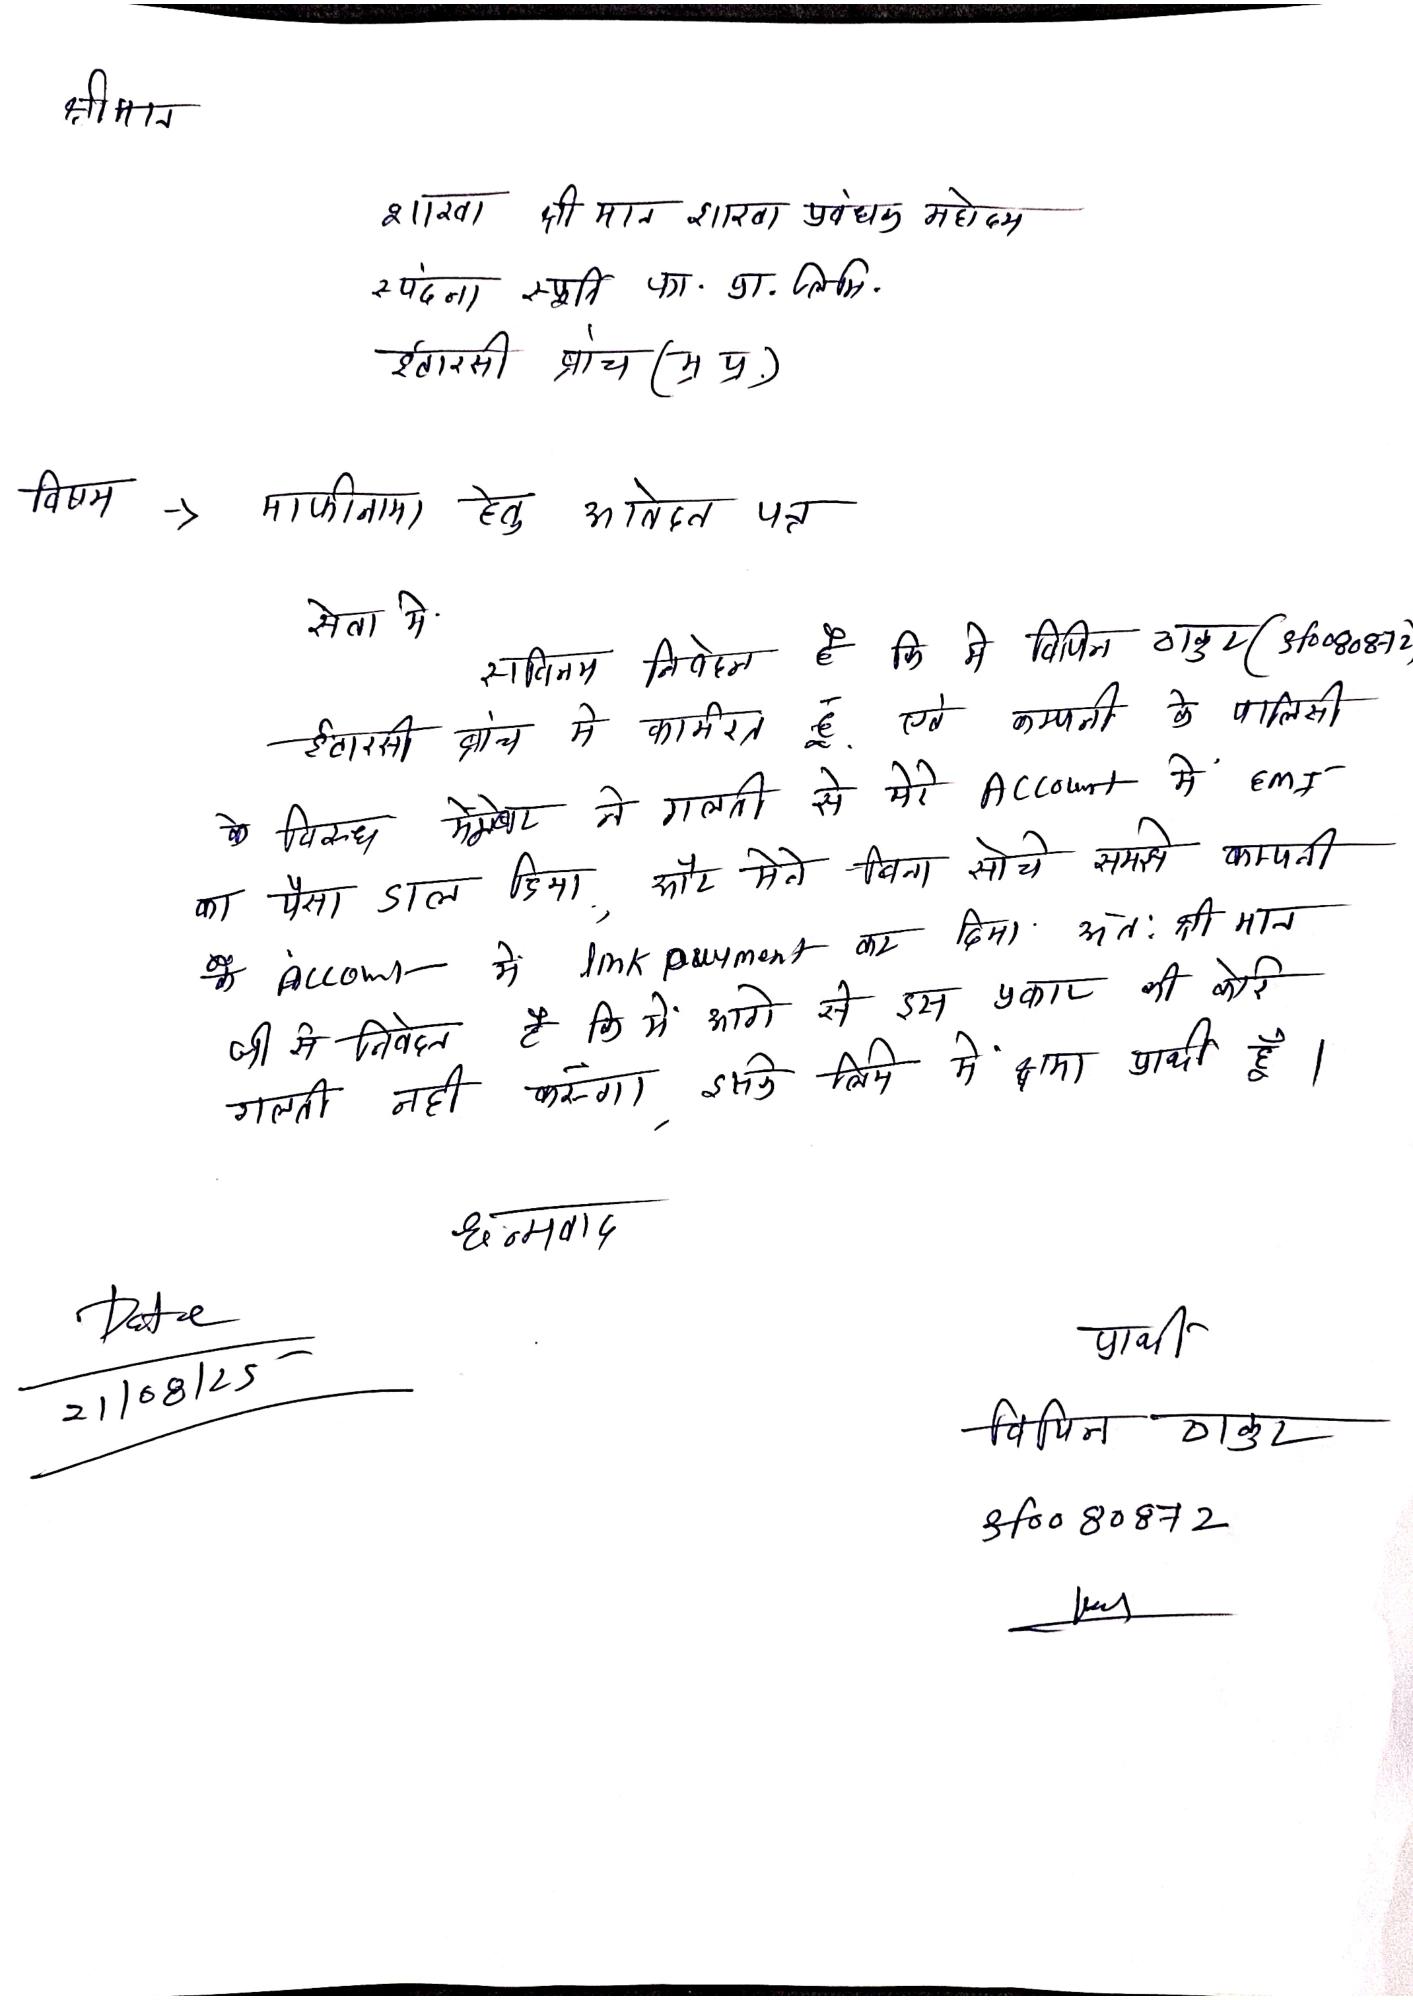 श्रीमान
शाखा श्री मान शाखा प्रबंधक महोदय
स्पंदना स्फूर्ति फा. प्रा. लिमि.
ईटारसी ब्रांच (म प्र.)
विषय → माफीनामा हेतु आवेदन पत्र
सेवा में.
सविनय निवेदन है कि मे विपिन ठाकुर (Sf0080872)
ईटारसी ब्रांच मे कार्मरत हूँ. एवं कम्पनी के पालिसी
के विरुध मेम्बर ने गलती से मेरे Account में EMI
का पैसा डाल दिया, और मेने बिना सोचे समझे कम्पनी
के Account में link payment कर दिया. अंत: श्री मान
जी से निवेदन है कि में आगे से इस प्रकार की कोई
गलती नही करूँगा, इसके लिये में क्षमा प्रार्थी हूँ ।
धन्यवाद
Date
21/08/25
प्रार्थी
विपिन ठाकुर
Sf0080872